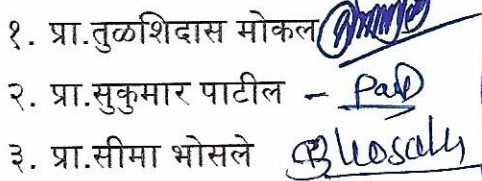 १. प्रा.तुळशिदास मोकल
२. प्रा.सुकुमार पाटील -
३. प्रा.सीमा भोसले Bhosale